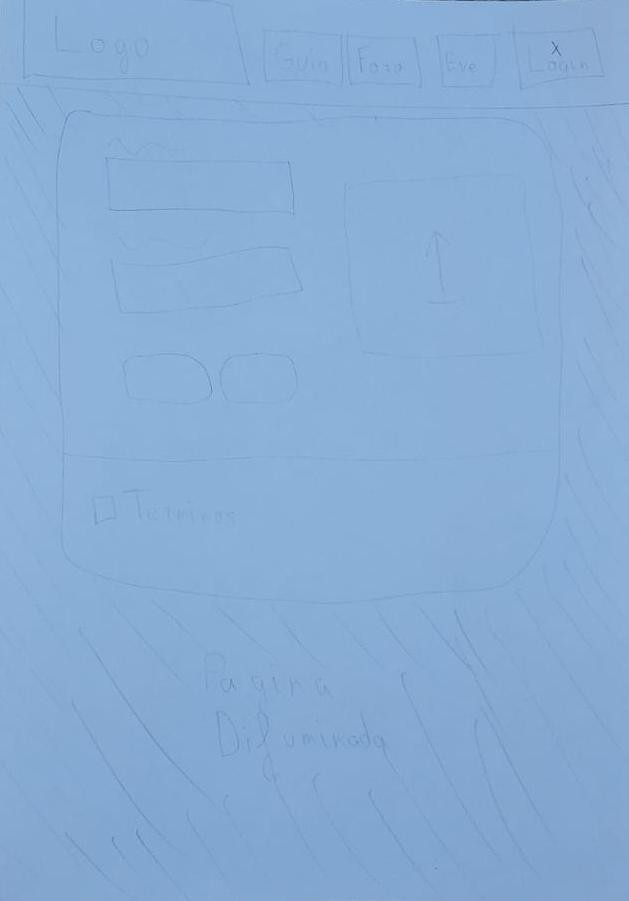 Logo
Guia
Foro
Eve
X
Login
Terminos
Pagina
Difuminada